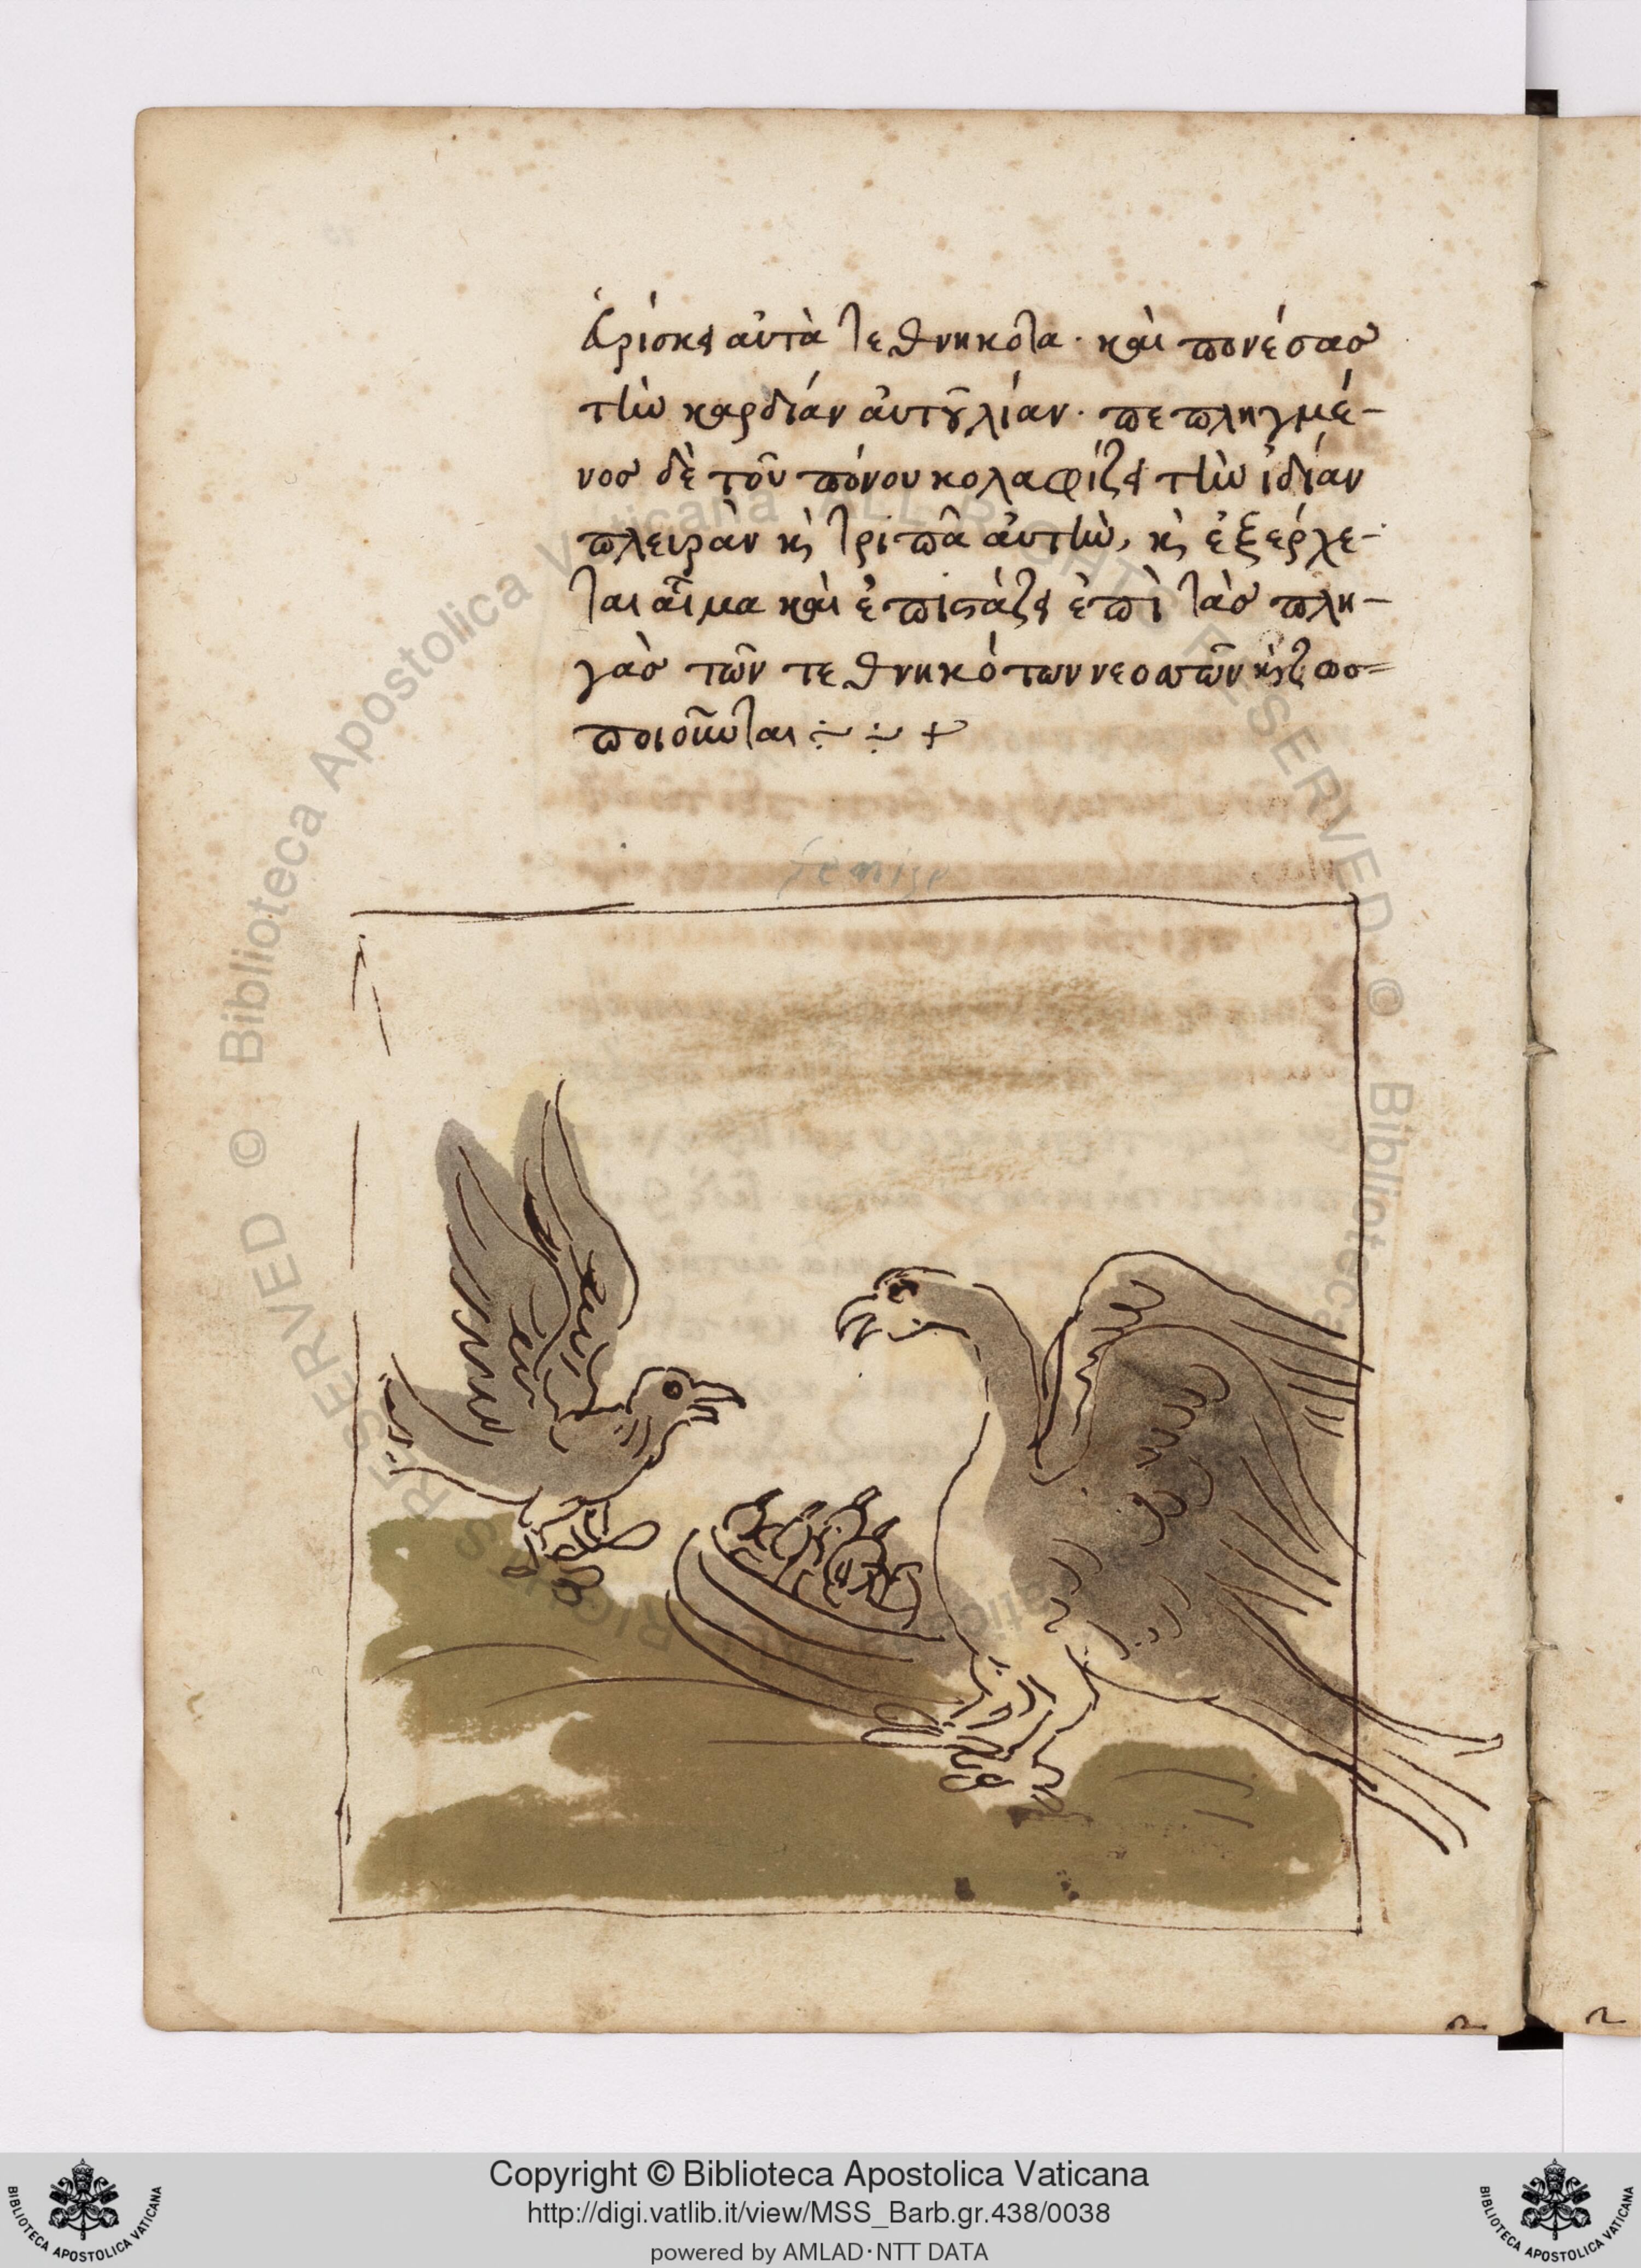 εὑρίσκει αὐτὰ τεθνηκότα· καὶ πονέσας
τὴν καρδίαν αὐτοῦ λίαν· πεπληγμέ-
νος δὲ τοῦ πόνου κολαφίζει τὴν ἰδίαν
πλευρὰν κ τρυπᾶ αὐτὴν, κ ἐξέρχε-
ται αἷμα καὶ ἐπιστάζει ἐπὶ τὰς πλη-
γὰς τῶν τεθνηκότων νεοττῶν κ ζωο-
ποιοῦνται
Copyright © Biblioteca Apostolica Vaticana
http://digi.vatlib.it/view/MSS_Barb.gr.438/0038
powered by AMLAD·NTT DATA
BIBLIOTECA APOSTOLICA VATICANA
BIBLIOTECA APOSTOLICA VATICANA